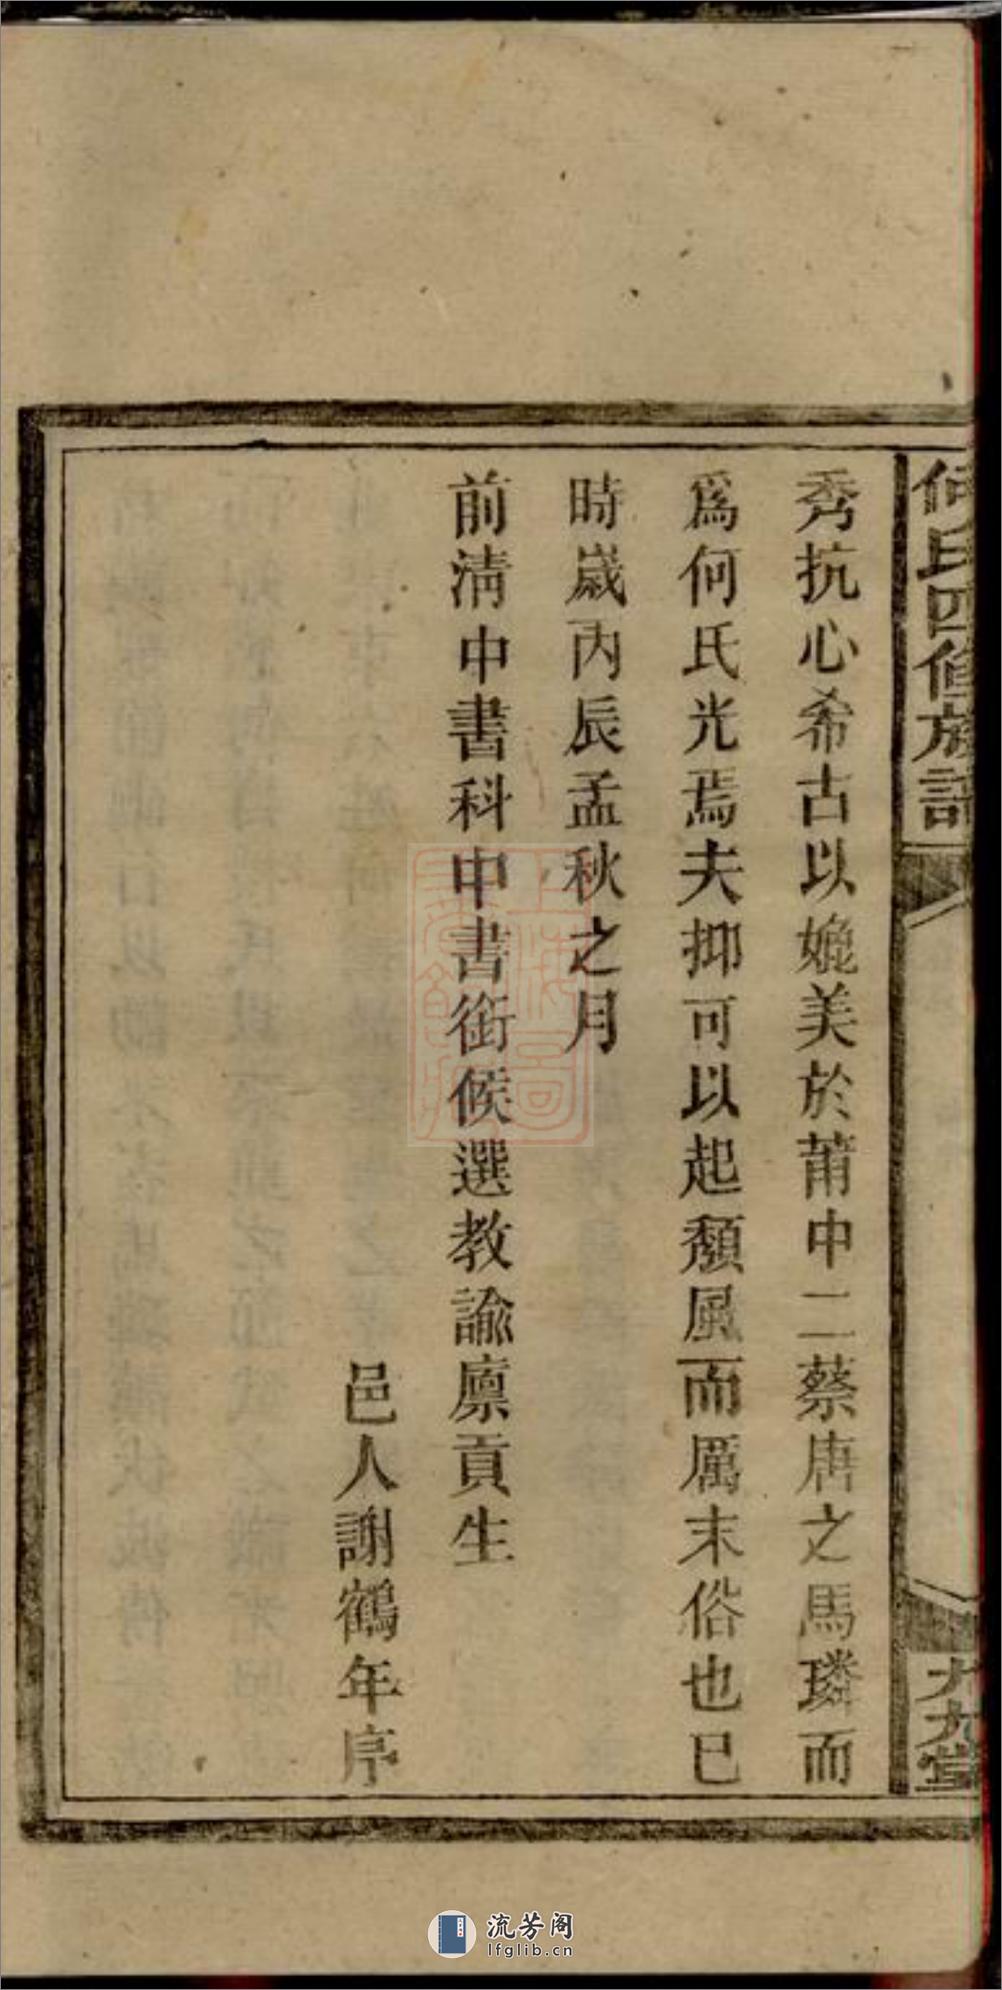 何氏四修族譜
九九堂
秀抗心希古以媲美於莆中二蔡唐之馬璘而
爲何氏光焉夫抑可以起頽風而厲末俗也已
時歲丙辰孟秋之月
前淸中書科中書銜候選教諭廪貢生
邑人謝鶴年序
流芳阁
lfglib.cn